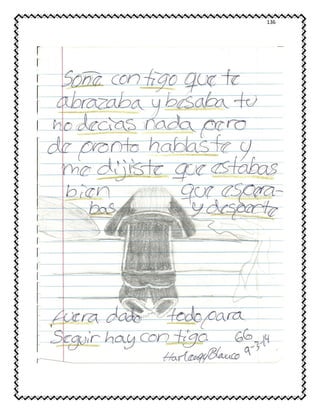 136
Soñe contigo que te
abrazaba y besaba tu
no decias nada pero
de pronto hablaste y
me dijiste que estabas
bien que espera-
bas y desperte
fuera dado todo para
Seguir hay contigo 66
Blanco 9-3-14